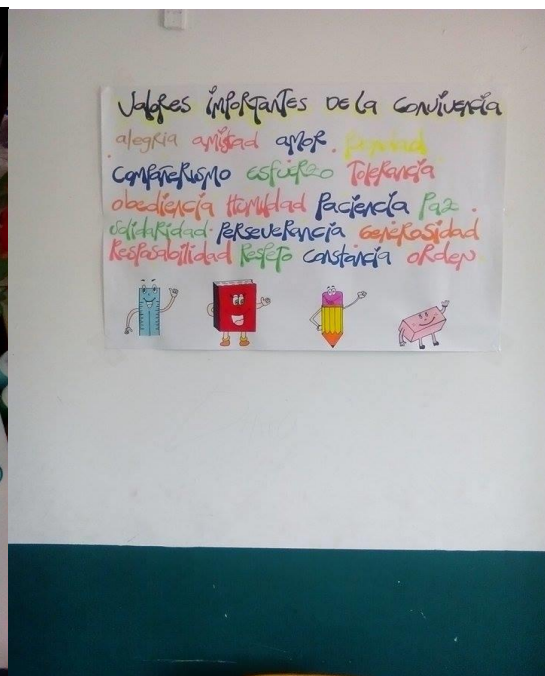 Valores importantes de la convivencia
alegria amistad amor bondad
compañerismo esfuerzo Tolerancia
obediencia Humildad Paciencia Paz
solidaridad Perseverancia Generosidad
Resposabilidad Respeto constancia orden